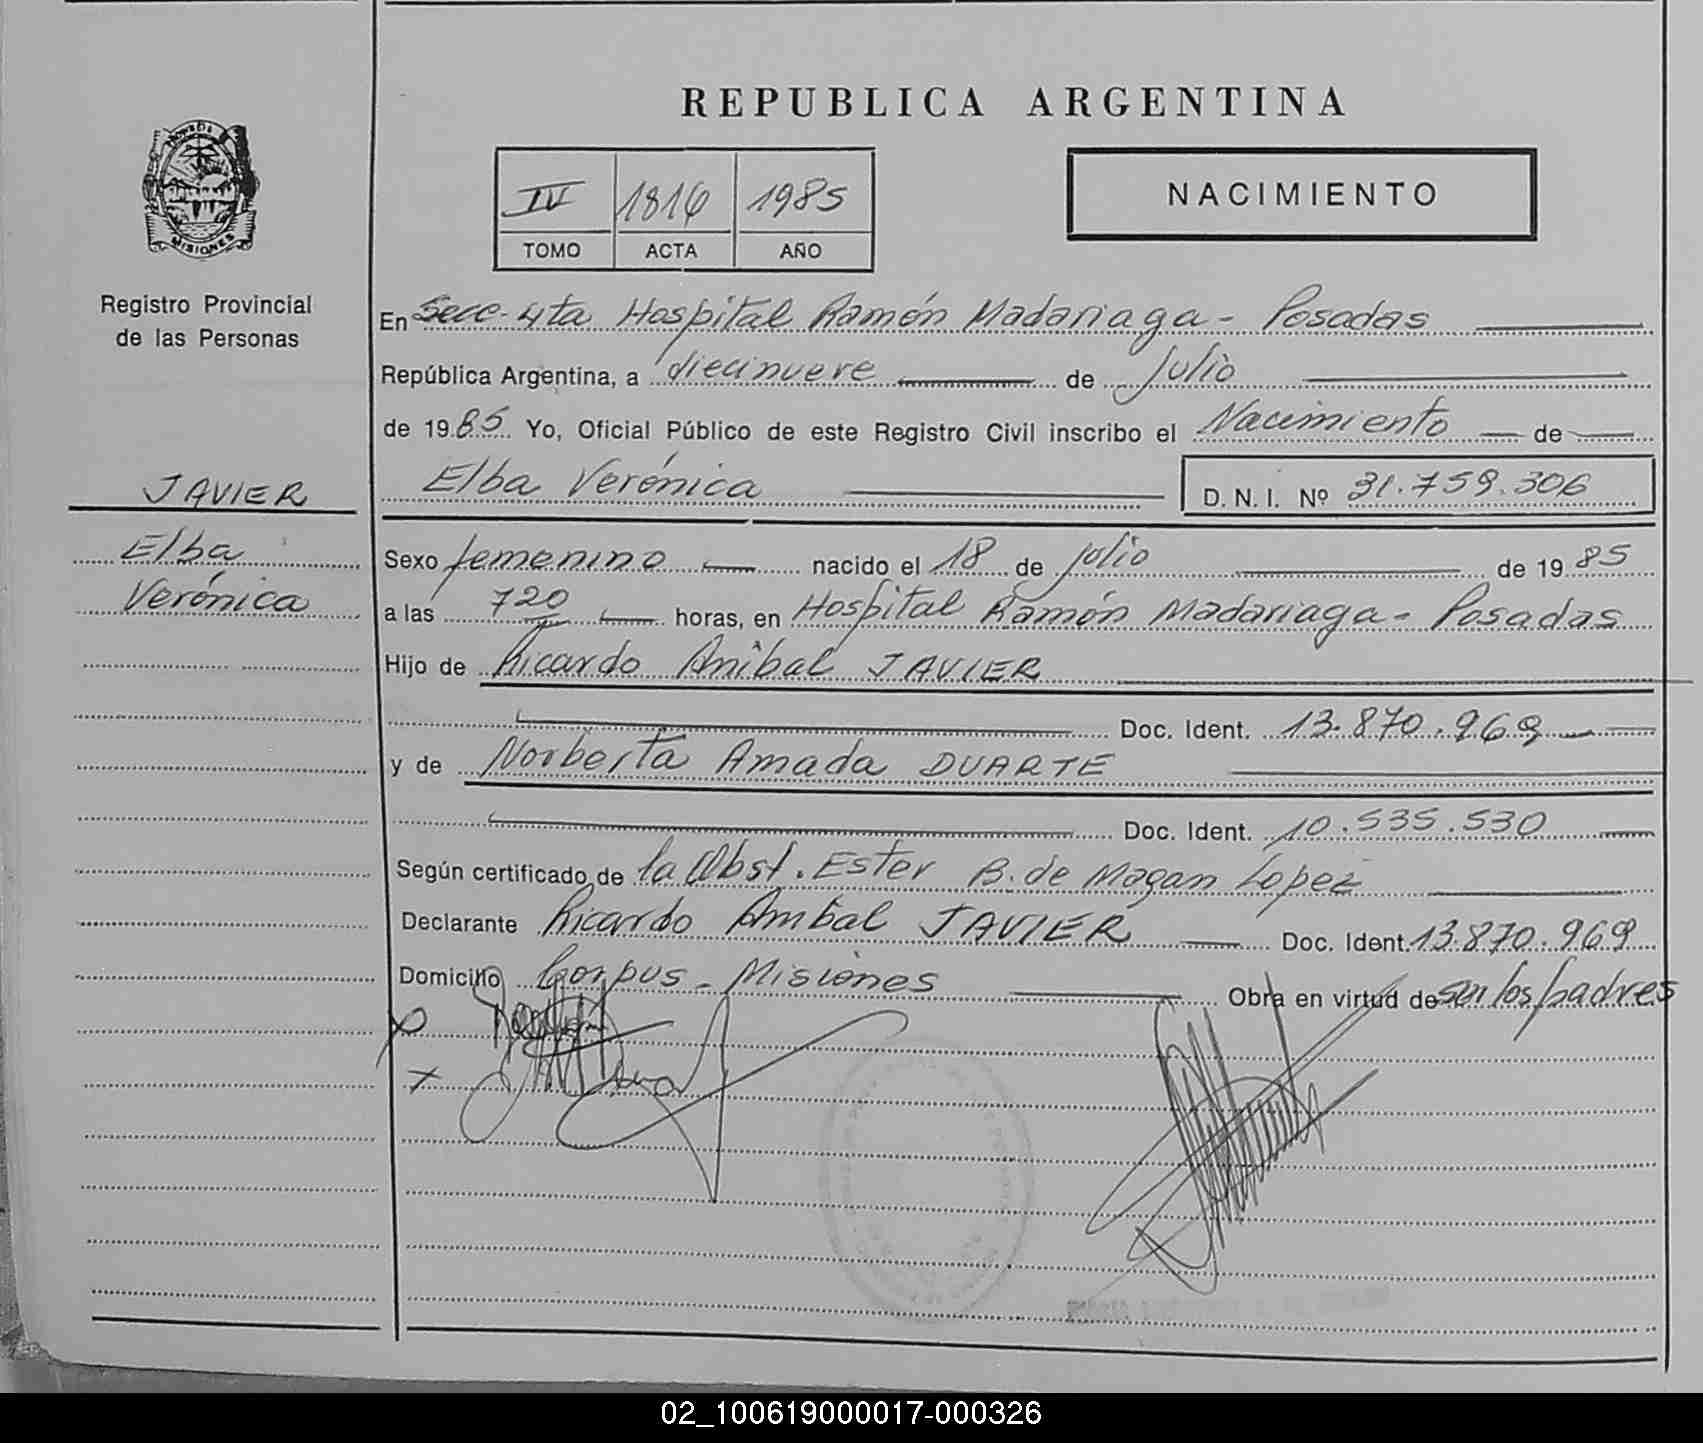 REPUBLICA ARGENTINA
PROVINCIA
MISIONES
Registro Provincial
de las Personas
IV 1816 1985
TOMO ACTA AÑO
NACIMIENTO
En Secc. 4ta Hospital Ramón Madariaga - Posadas
República Argentina, a diecinueve de Julio
de 1985 Yo, Oficial Público de este Registro Civil inscribo el Nacimiento de
JAVIER
Elba Verónica
D.N.I. Nº 31.759.306
Elba
Verónica
Sexo femenino nacido el 18 de julio de 1985
a las 720 horas, en Hospital Ramón Madariaga - Posadas
Hijo de Ricardo Anibal JAVIER
Doc. Ident. 13.870.969
y de Norberta Amada DUARTE
Doc. Ident. 10.535.530
Según certificado de la Obst. Ester B. de Magan Lopez
Declarante Ricardo Anibal JAVIER Doc. Ident. 13.870.969
Domicilio Corpus - Misiones Obra en virtud de ser los padres
02_100619000017-000326